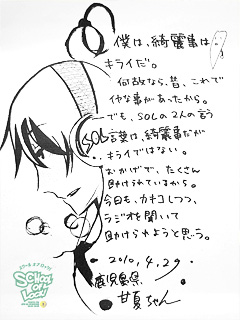 僕は、綺麗事は
キライだ。
何故なら、昔、これで
イヤな事があったから。
でも、SOLの2人の言う
言葉は、綺麗事だが
キライではない。
おかげで、たくさん
助けられているから。
今日も、カキコしつつ、
ラジオを聞いて
助けられようと思う。
2010.4.29.
鹿児島県
甘夏ちゃん
SOL
School
of
Lock!